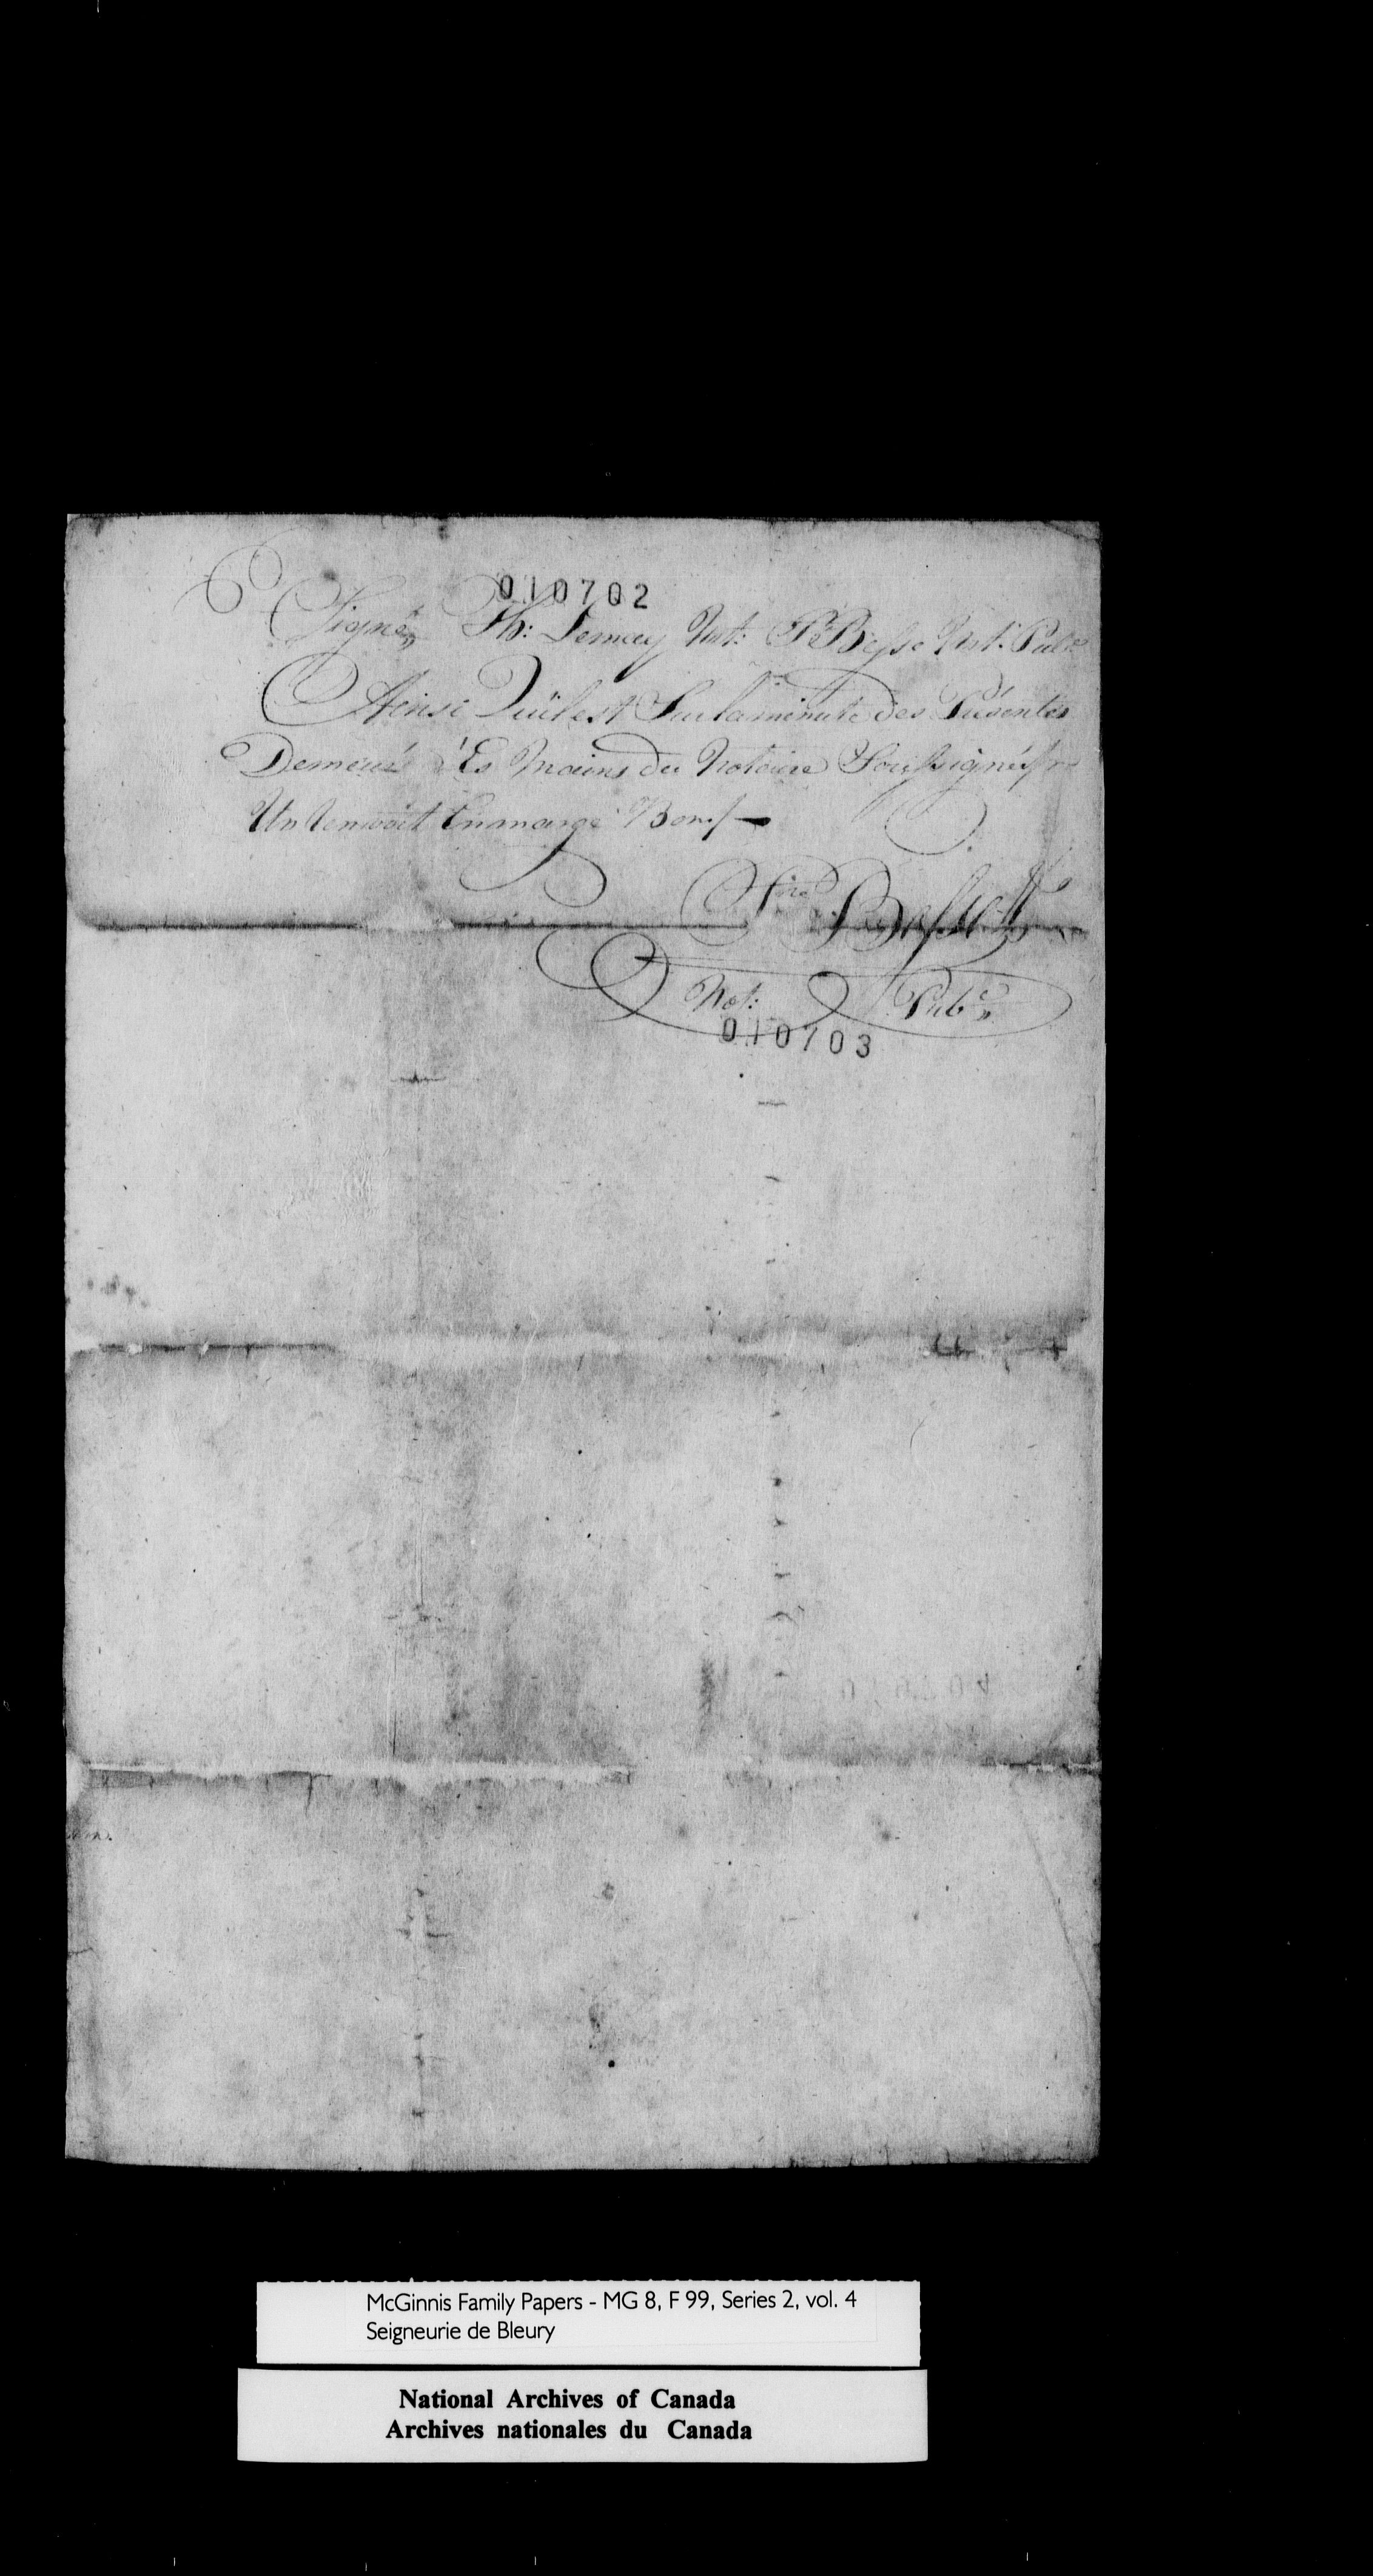 010702
Signé, Th: Lemay Not: Pr. Besse Not. Pub.
Ainsi Quil est Sur la minute des Présentes
Demeuré Es Mains du Notaire Soussigné
Un Renvoit En marge Bon./
Besse
Not: Pub.
010703
McGinnis Family Papers - MG 8, F 99, Series 2, vol. 4
Seigneurie de Bleury
National Archives of Canada
Archives nationales du Canada